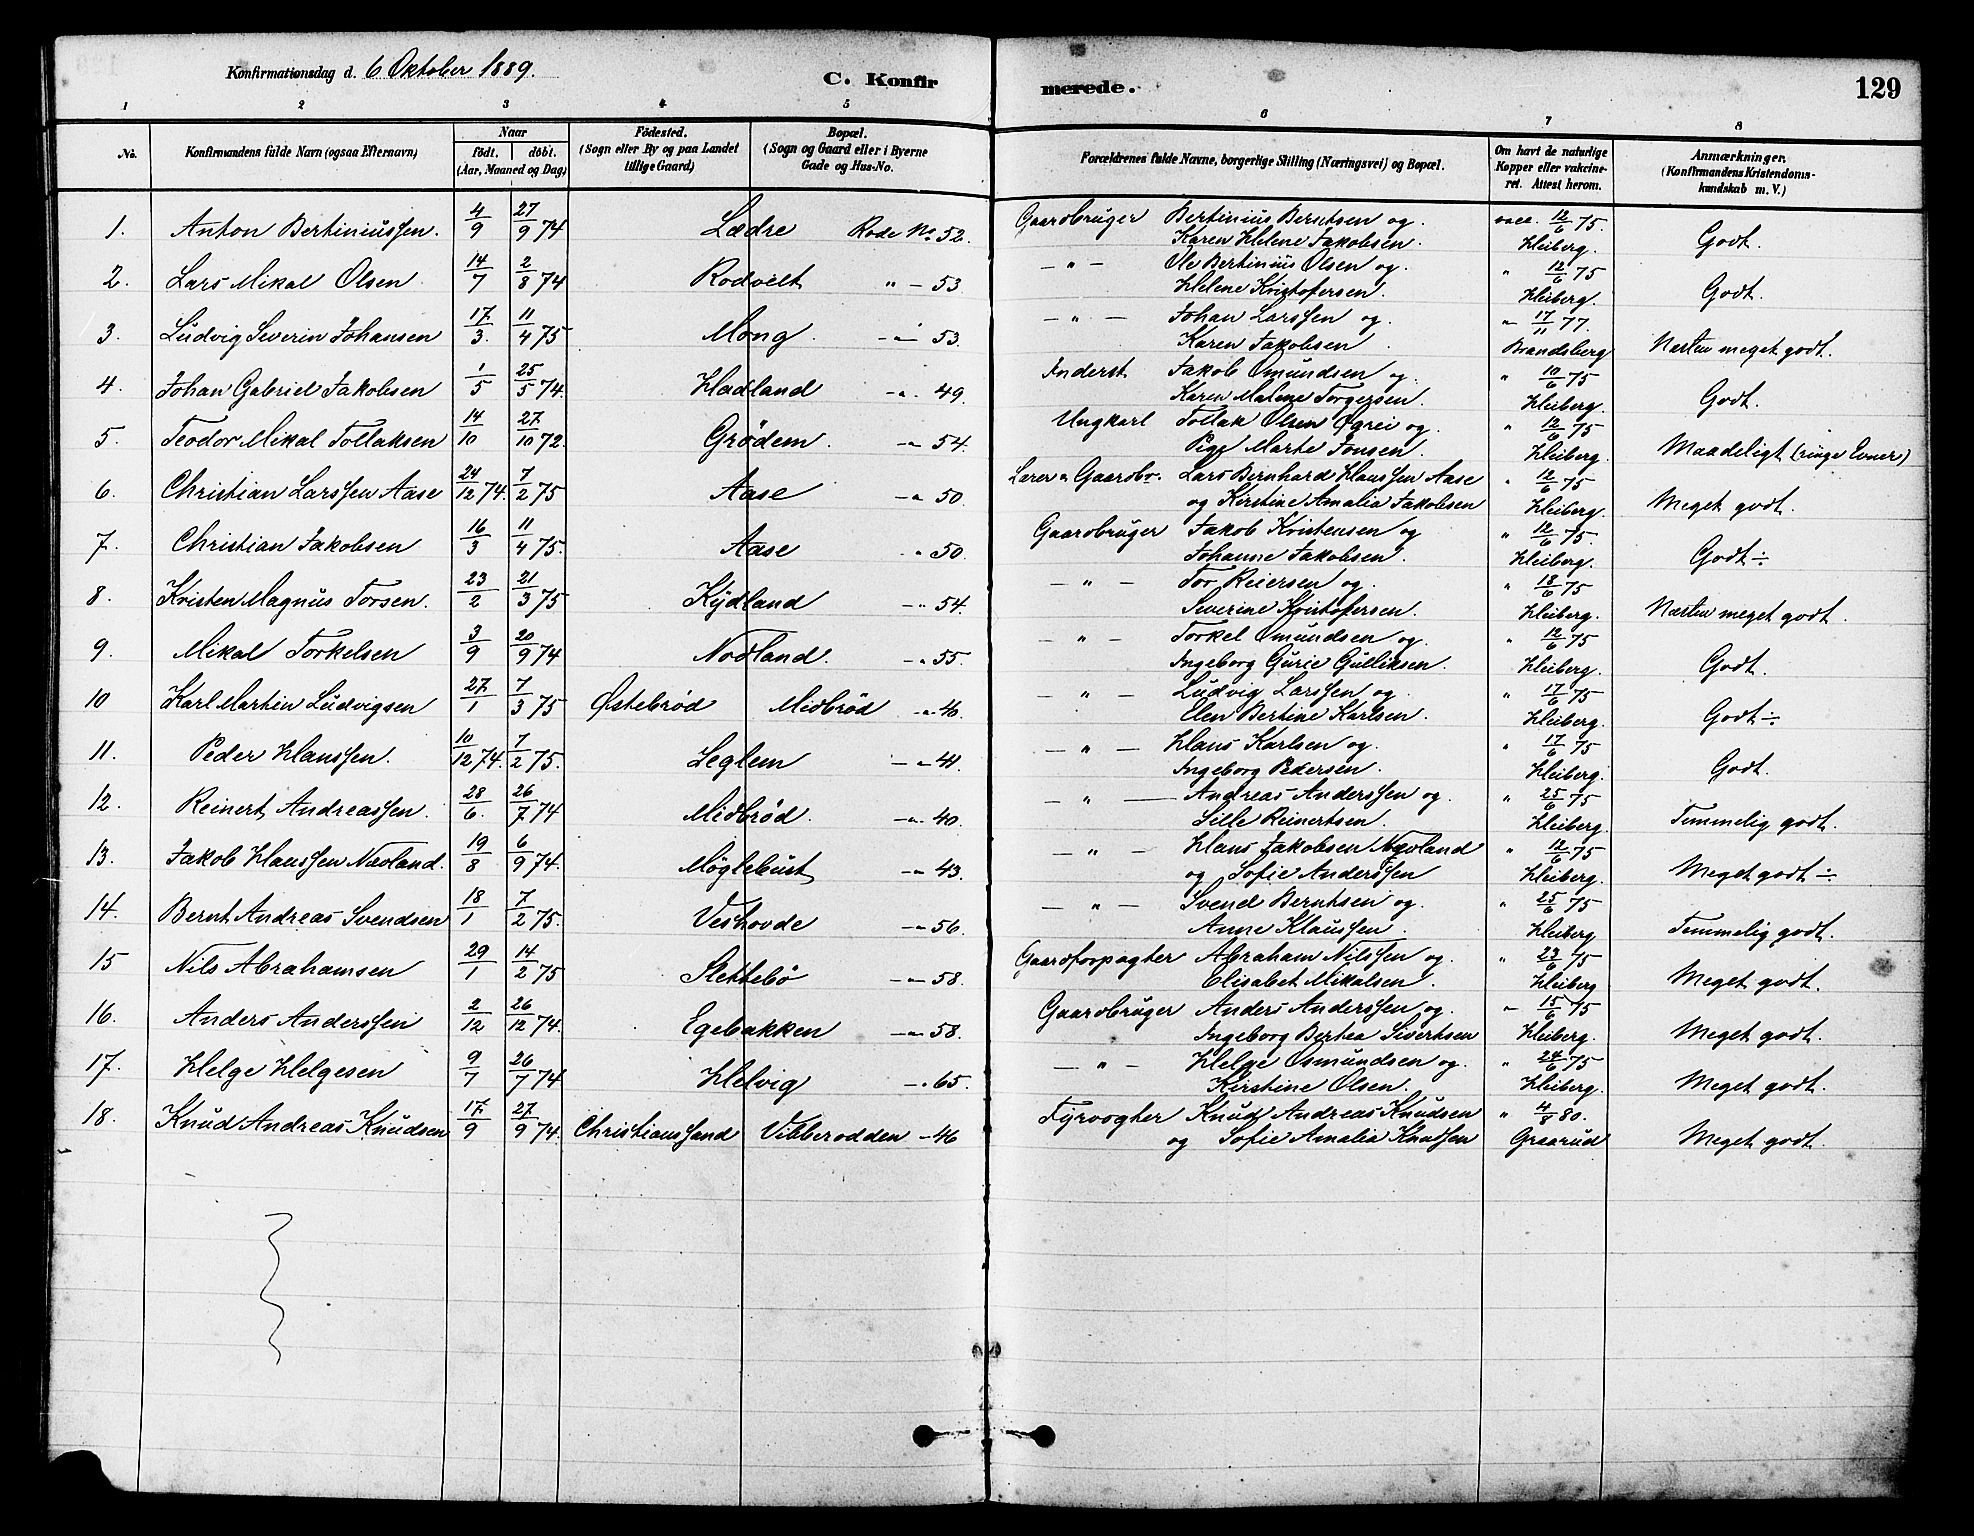 Konfirmationsdag d. 6 Oktober 1889.
C. Konfirmerede.
129
1 2 3 4 5 6 7 8
No.
Konfirmandens fulde Navn (ogsaa Efternavn)
Naar
födt. döbt.
(Aar, Maaned og Dag)
Födested.
(Sogn eller By og paa Landet
tillige Gaard)
Bopæl.
(Sogn og Gaard eller i Byerne
Gade og Hus-No.
Forældrenes fulde Navne, borgerlige Stilling (Næringsvei) og Bopæl.
Om havt de naturlige
Kopper eller vakcine-
ret. Attest herom.
Anmærkninger.
(Konfirmandens Kristendoms-
kundskab m. V.)
1. Anton Bertiniussen. 4/9 27/9 74 Lædre Rode No 52. Gaardbruger Bertinius Berntsen og vacc. 12/6 75.
Karen Helene Jakobsen. Heiberg. Godt.
2. Lars Mikal Olsen 14/7 2/8 74 Rodvelt " - 53 - " - Ole Bertinius Olsen og. " 12/6 75
Helene Kristofersen. Heiberg. Godt.
3. Ludvig Severin Johansen 17/3. 11/4 75 Mong - " - 53. - " - Johan Larssen og. " 17/11 77.
Karen Jakobsen. Brandsberg Næsten meget godt.
4. Johan Gabriel Jakobsen 1/5 25/5 74. Hadland - " - 49. Inderst Jakob Omundsen og. " 10/6 75
Karen Malene Torgersen. Heiberg. Godt.
5. Teodor Mikal Tollaksen 14/10 27/10 72. Grödem. - " - 54. Ungkarl Tollak Olsen Ögrei og. " 12/6 75
Pige Marte Jonsen. Heiberg. Maadeligt (ringe Evner)
6. Christian Larssen Aase 24/12 74. 7/2 75 Aase - " - 50. Lærer & Gaardbr. Lars Bernhard Hanssen Aase " 12/6 75
og Kirstine Amalia Jakobsen Heiberg. Meget godt.
7. Christian Jakobsen 16/3 11/4 75. Aase " 50. Gaardbruger Jakob Kristensen og " 12/6 75.
Johanne Jakobsen. Heiberg. Godt ÷
8. Kristen Magnus Torsen. 23/2 21/3 75 Kydland - " 54. - " - Tor Reiersen og. " 18/6 75
Severine Kristofersen. Heiberg. Næsten meget godt.
9. Mikal Torkelsen 3/9 20/9 74 Nodland. - " 55. - " - Torkel Omundsen og. " 12/6 75
Ingeborg Gurie Gulliksen. Heiberg. Godt.
10 Karl Martin Ludvigsen 27/1 7/3 75 Østebröd Midbröd - " - 40. - " - Ludvig Larssen og. " 17/6 75
Elen Bertine Karlsen. Heiberg. Godt ÷
11. Peder Hanssen. 10/12 74. 7/2 75. Leglem - " 41. - " - Hans Karlsen og. " 17/6 75
Ingeborg Pedersen. Heiberg. Godt.
12. Reinert Andreassen. 28/6. 26/7 74 Midbröd. - " - 40. - " - Andreas Anderssen og. " 25/6 75
Sille Reinertsen. Heiberg. Temmelig godt.
13. Jakob Hanssen Nædland. 19/8 6/9 74. Möglebust - " 43. - " - Hans Jakobsen Nædland " 12/6 75
og Sofie Anderssen Heiberg. Meget godt ÷
14. Bernt Andreas Svendsen 18/1 7/2 75. Veshovde - " 56. - " - Svend Berntsen og. " 25/6 75
Anne Klaussen. Heiberg Temmelig godt.
15 Nils Abrahamsen 29/1 14/2 75 Slettebö - " - 58. Gaardforpagter Abraham Nilssen og. " 23/6 75
Elisabet Mikalsen. Heiberg Meget godt.
16. Anders Anderssen 2/12 26/12 74. Egebakken - " - 58. Gaardbruger Anders Anderssen og. " 15/6 75
Ingeborg Bertea Sivertsen Heiberg. Meget godt.
17. Helge Helgesen 9/7 26/7 74 Helvig - " 65. - " - Helge Osmundsen og. " 24/6 75
Kirstine Olsen. Heiberg. Meget godt.
18. Knud Andreas Knudsen 17/9 27/9 74. Christianssand Vibberodden - 46 Fyrvogter Knud Andreas Knudsen " 4/8 80.
og Sofie Amalia Knudsen Graarud Meget godt.